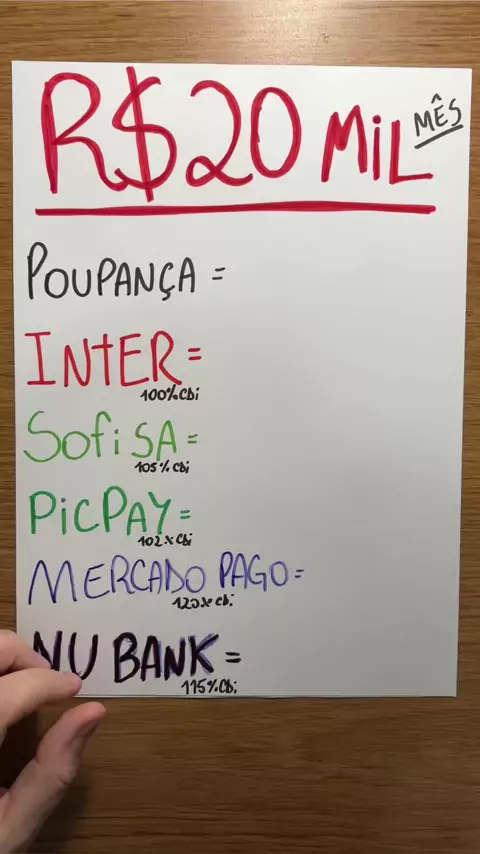 R$20 MiL MÊS
POUPANÇA =
INTER =
100% CDi
SofiSA =
105% CDi
PiCPAY =
102% CDi
MERCADO PAGO =
120% CDi
NU BANK =
115% CDi